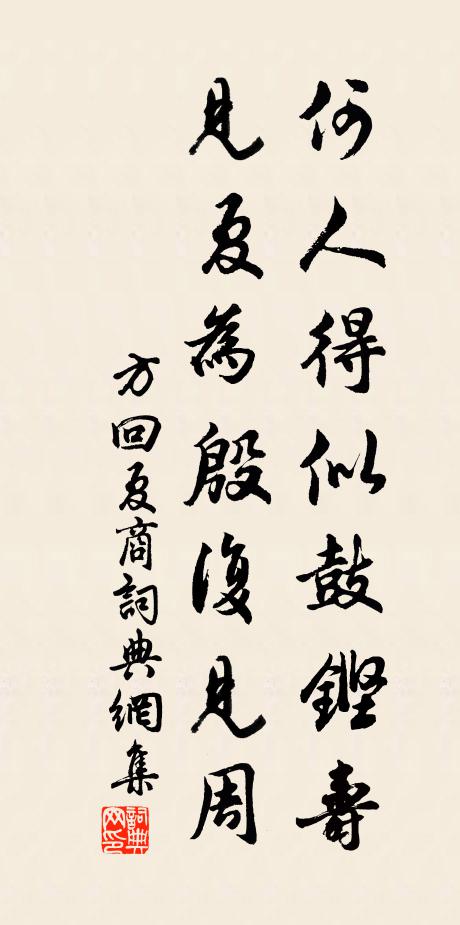 何人得似鼓鏗壽
見夏為殷復見周
方回夏商詞典網集
詞典网印